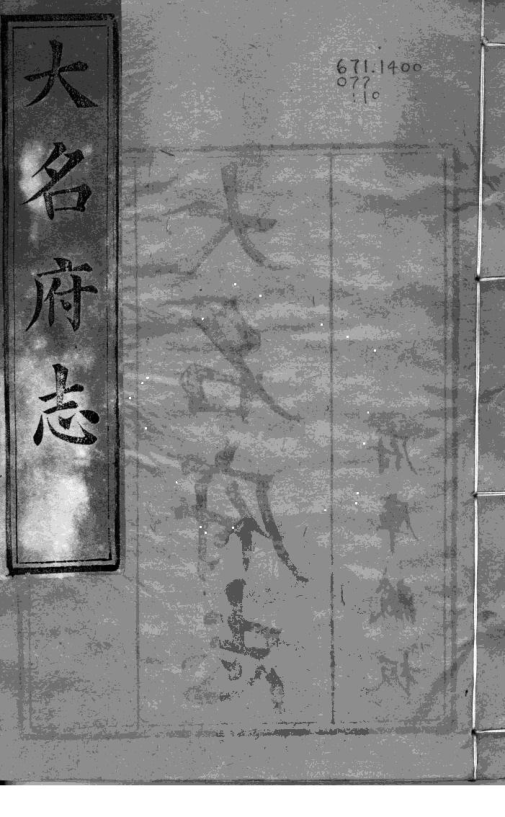 大名府志
671.1400
077
:10
大名府志